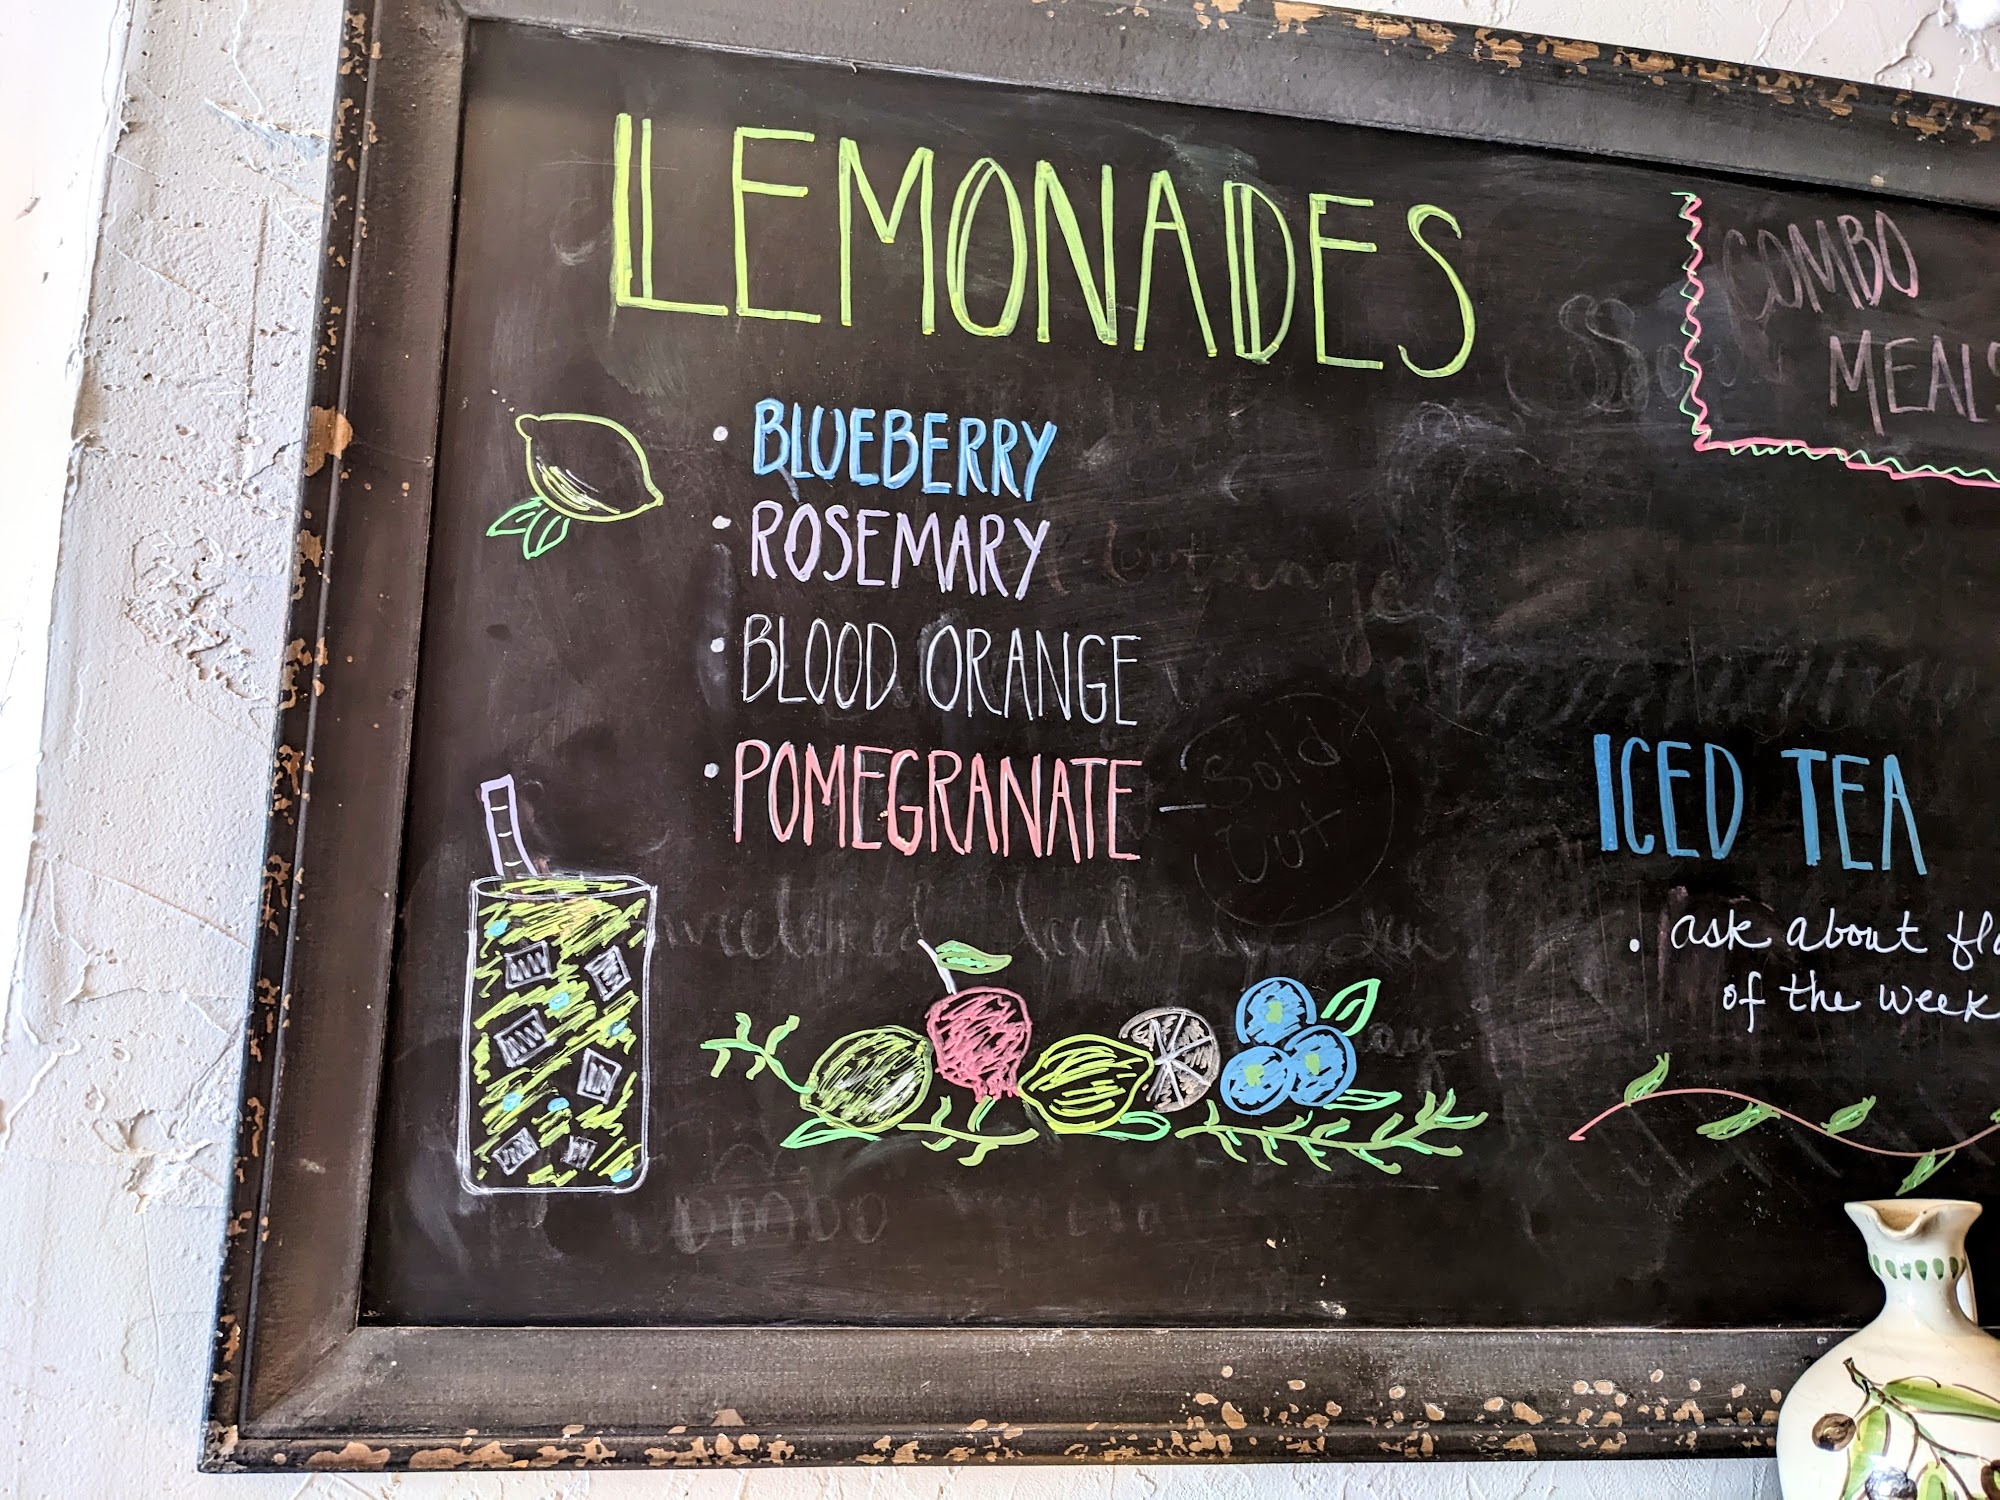 LEMONADES
• BLUEBERRY
• ROSEMARY
• BLOOD ORANGE
• POMEGRANATE
Sold
Out
COMBO
MEALS
ICED TEA
• ask about fla
of the week